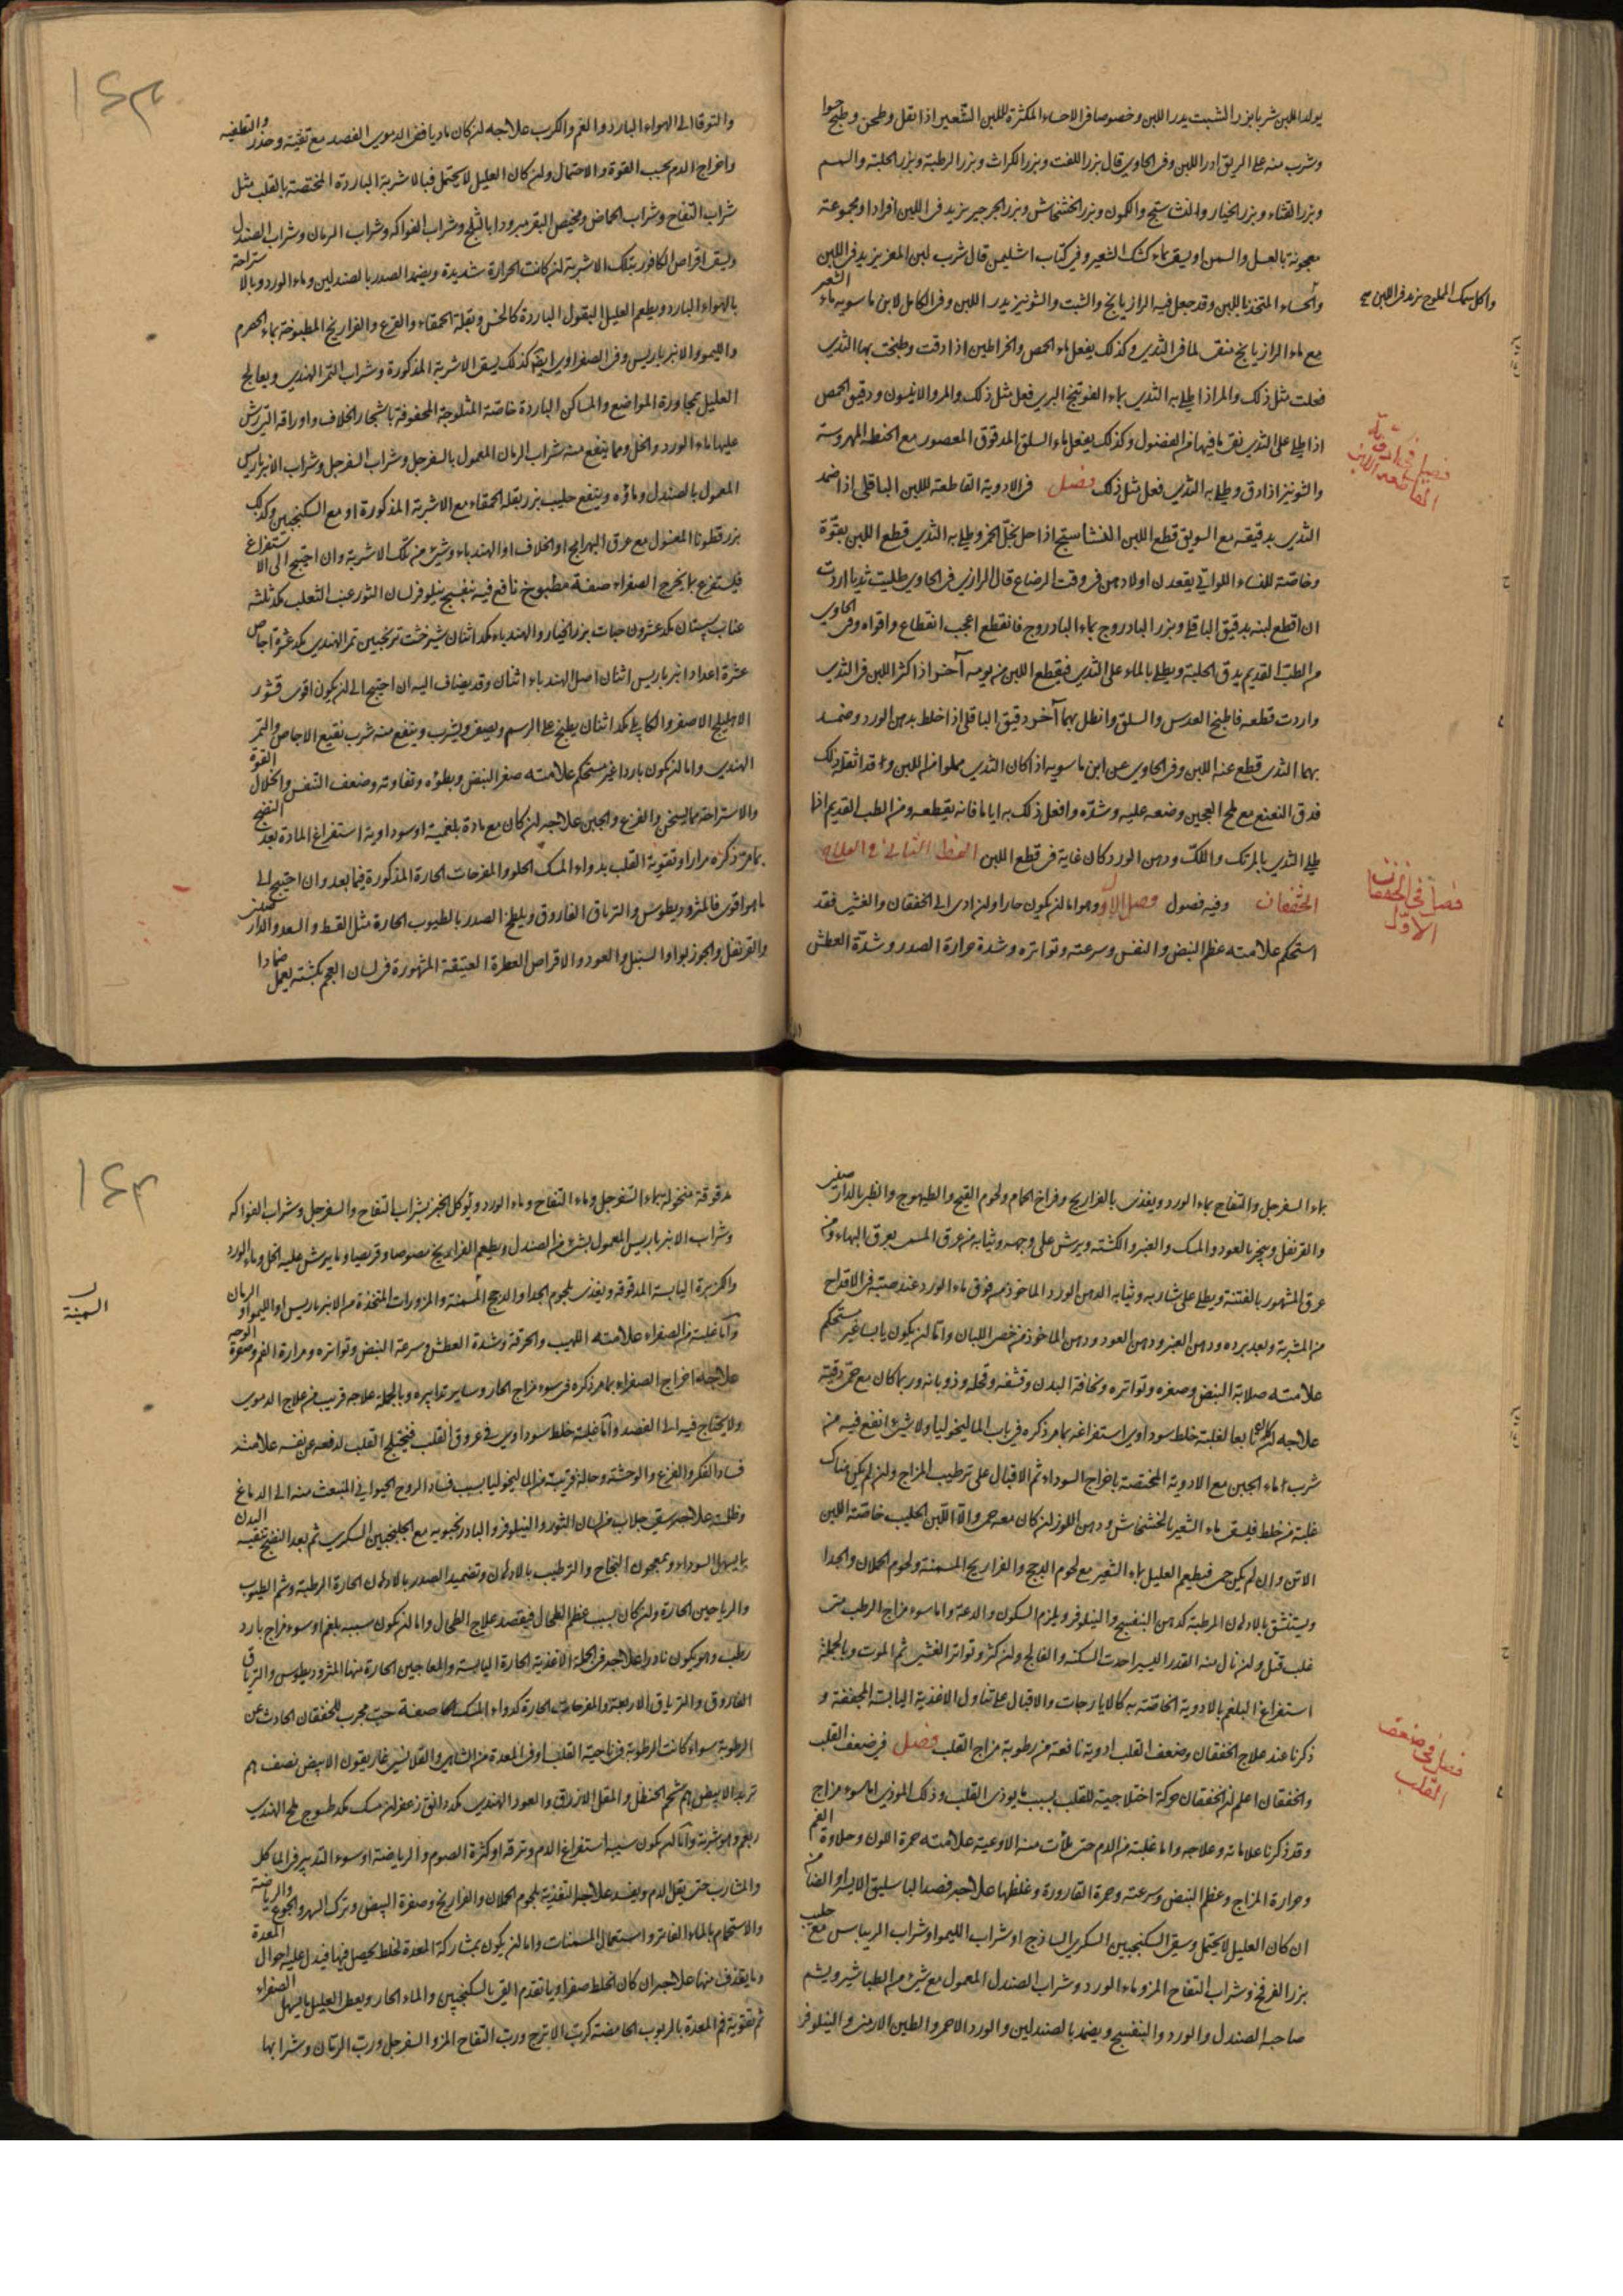 يولد اللبن شربا بزر الشبت يدر اللبن وخصوصا في الاحساء المكثرة للبن الشعير اذا بقل وطحن وطبخ حسوا
وشرب منه على الريق ادر اللبن وفي الحاوي قال بزر اللفت وبزر الكراث وبزر الرطبة وبزر الحلبة والسمسم
وبزر القثاء وبزر الخيار والنشاستج والكمون وبزر الخشخاش وبزر الجرجير يزيد في اللبن افرادا ومجموعة
معجونة بالعسل والسمن او يسقى بماء كشك الشعير وفي كتاب اشليمن قال شرب لبن المعز يزيد في اللبن
والحساء المتخذ باللبن وقد جعل فيه الرازيانج والشبت والشونيز يدر اللبن وفي الكامل لابن ماسويه ماء الشعير
واكل سمك المملوح يزيد في اللبن صح
مع ماء الرازيانج منق لما في الثدي وكذلك يفعل ماء الحمص والخراطين اذا دقت وطبخت بها الثدي
فعلت مثل ذلك والمر اذا طلي به الثدي بماء الفوتنج البري فعل مثل ذلك والمر والانيسون ودقيق الحمص
اذا طلي على الثدي نقى ما فيها من الفضول وكذلك يفعل ماء السلق المدقوق المعصور مع الحنطة المهروسة
والشونيز اذا دق وطلي به الثدي فعل مثل ذلك فصل في الادوية القاطعة للبن الباقلى اذا ضمد
فصل في ادوية القاطعة اللبن
الثدي بدقيقه مع السويق قطع اللبن النشاستج اذا حل بخل الخمر وطلي به الثدي قطع اللبن بقوة
وخاصة للنساء اللواتي يفقدن اولادهن في وقت الرضاع قال الرازي في الحاوي طليت ثديا اردت
ان اقطع لبنه بدقيق الباقلى وبزر الباذروج بماء الباذروج فانقطع اعجب انقطاع واقواه وفي الحاوي
من الطب القديم يدق الحلبة ويطلى بالماء على الثدي فيقطع اللبن من يومه آخر اذا كثر اللبن في الثدي
واردت قطعه فاطبخ العدس والسلق وانطل بهما آخر دقيق الباقلى اذا خلط بدهن الورد وضمد
بهما الثدي قطع عنه اللبن وفي الحاوي عن ابن ماسويه اذا كان الثدي مملوا من اللبن وقد اثقله ذلك
فدق النعنع مع ملح العجين وضعه عليه وشده وافعل ذلك به اياما فانه يقطعه ومن الطب القديم اذا
طلي الثدي بالمرتك واللك ودهن الورد كان غاية في قطع اللبن النمط الثاني في العلاج
الخفقان وفيه فصول فصل الاول وهو اما ان يكون حارا وان ادى الى الخفقان والغشي فقد
فصل في الخفقان الاول
استحكم علامته عظم النبض والنفس وسرعته وتواتره وشدة حرارة الصدر وشدة العطش
١٤٣
والتوق الى الهواء البارد والغم والكرب علاجه ان كان ماديا فمن الدموي الفصد مع تنقية وحذر والتطفية
واخراج الدم بحسب القوة والاحتمال وان كان العليل لا يحتمل فبالاشربة الباردة المختصة بالقلب مثل
شراب التفاح وشراب الحماض ومخيض البقر مبرودا بالثلج وشراب الفواكه وشراب الرمان وشراب الصندل
وليسق اقراص الكافور بتلك الاشربة ان كانت الحرارة شديدة ويضمد الصدر بالصندلين وماء الورد وبالاستراحة
بالهواء البارد ويطعم العليل البقول الباردة كالخس وبقلة الحمقاء والقرع والفراريج المطبوخة بماء الحصرم
والليمو والانبرباريس وفي الصفراوي ايضا كذلك يسقى الاشربة المذكورة وشراب التمر الهندي ويعالج
العليل بمجاورة المواضع والمساكن الباردة خاصة المثلوجة المحفوفة باشجار الخلاف واوراقه التي رش
عليها ماء الورد والخل ومما ينفع منه شراب الرمان المعمول بالسفرجل وشراب السفرجل وشراب الانبرباريس
المعمول بالصندل وماؤه وينفع حليب بزر بقلة الحمقاء مع الاشربة المذكورة او مع السكنجبين وكذلك
بزر قطونا المغسول مع عرق البهرامج او الخلاف او الهندباء وشيء من تلك الاشربة وان احتيج الى الاستفراغ
فليستفرغ بما يخرج الصفراء صفة مطبوخ نافع فيه بنفسج نيلوفر لسان الثور عنب الثعلب مكد ثلثة
عناب سپستان مكد عشرون حبات بزر الخيار والهندباء مكد اثنان شيرخشت ترنجبين تمر الهندي مكد عشرة اجاص
عشرة اعداد انبرباريس اثنان اصل الهندباء اثنان وقد يضاف اليه ان احتيج الى ان يكون اقوى قشور
الاهليلج الاصفر والكابلي مكد اثنان يطبخ على الرسم ويصفى ويشرب وينفع منه شرب نقيع الاجاص والتمر
الهندي واما ان يكون باردا غير مستحكم علامته صغر النبض وبطؤه وتفاوته وضعف النفس وانحلال القوة
والاستراحة بما يسخن والفزع والجبن علاجه ان كان مع مادة بلغمية او سوداوية استفراغ المادة بعد النضج
بما مر ذكره مرارا وتقوية القلب بدواء المسك الحلو والمفرحات الحارة المذكورة فيما بعد وان احتيج الى
ما هو اقوى فالمثروديطوس والترياق الفاروق ويلطخ الصدر بالطيوب الحارة مثل القسط والسعد والدارصيني
والقرنفل والجوزبوا والسنبل والعود والاقراص العطرة العتيقة المشهورة في لسان العجم بكشته يعمل ضمادا
بماء السفرجل والتفاح بماء الورد ويغذى بالفراريج وفراخ الحمام ولحوم القبج والطيهوج والطير بالدارصيني
والقرنفل ويبخر بالعود والمسك والعنبر والكشته ويرش على وجهه وثيابه من عرق المسمى بعرق البهاء ومن
عرق المشهور بالفتنة ويطلى على شاربه وثيابه الدهن الورد الماخوذ من فوق ماء الورد عند صبته في الاقداح
من المشربة وبعد برده ودهن العنبر ودهن العود ودهن الماخوذ من خصى اللبان واما ان يكون يابسا غير مستحكم
علامته صلابة النبض وصغره وتواتره ونحافة البدن وقشفه وقحله وذوبانه وربما كان مع حمى دقية
علاجه ان كان تابعا لغلبة خلط سوداوي استفراغه بما مر ذكره في باب الماليخوليا ولا شيء انفع فيه من
شرب ماء الجبن مع الادوية المختصة باخراج السوداء ثم الاقبال على ترطيب المزاج وان لم يكن هناك
غلبة من خلط فليسق ماء الشعير بالخشخاش ودهن اللوز ان كان معه حمى والا اللبن الحليب خاصة اللبن
الاتن وان لم يكن حمى فيطعم العليل بماء الشعير مع لحوم الدجج والفراريج المسمنة ولحوم الحملان والجدا
ويستنشق بالادهان المرطبة كدهن البنفسج والنيلوفر ويلزم السكون والدعة واما سوء مزاج الرطب متى
غلب قتل وان نال منه القدر اليسير احدث السكتة والفالج وان كثر وتواتر الغشي ثم الموت وبالجملة
استفراغ البلغم بالادوية الخاصة به كالايارجات والاقبال على تناول الاغذية اليابسة المجففة و
ذكرنا عند علاج الخفقان وضعف القلب ادوية نافعة من رطوبة مزاج القلب فصل في ضعف القلب
فصل في ضعف القلب
والخفقان اعلم ان الخفقان حركة اختلاجية للقلب بسبب ما يوذى القلب وذلك الموذي اما سوء مزاج
وقد ذكرنا علاماته وعلاجه واما غلبة من الدم حتى ملأت منه الاوعية علامته حمرة اللون وحلاوة الفم
وحرارة المزاج وعظم النبض وسرعته وحمرة القارورة وغلظها علاجه فصد الباسليق الايسر او الصافن
ان كان العليل لا يحتمل وسقى السكنجبين السكري الساذج او شراب الليمو او شراب الريباس مع حليب
بزر الفرفخ وشراب التفاح المز وماء الورد وشراب الصندل المعمول مع شيء من الطباشير ويشم
صاحبه الصندل والورد والبنفسج ويضمد بالصندلين والورد الاحمر والطين الارمني والنيلوفر
١٤٤
مدقوقة منخولة بماء السفرجل وماء التفاح وماء الورد ويوكل الخبز بشراب التفاح والسفرجل وشراب الفواكه
وشراب الانبرباريس المعمول بشيء من الصندل ويطعم الفراريج مصوصا وقريصا وما يرش عليه الخل وماء الورد
والكزبرة اليابسة المدقوقة ويغذى بلحوم الجدا والدجج المسمنة والمزورات المتخذة من الانبرباريس او الليمو او الرمان
السمينة
واما غلبة من الصفراء علامته اللهيب والحرقة وشدة العطش وسرعة النبض وتواتره ومرارة الفم وصفرة الوجه
علاجه اخراج الصفراء بما مر ذكره في سوء مزاج الحار وساير تدابيره وبالجملة علاجه قريب من علاج الدموي
ولا يحتاج فيه الى الفصد واما غلبة خلط سوداوي في عروق القلب فيختلج القلب لدفعه عن نفسه علامته
فساد الفكر والفزع والوحشة وحالة قريبة من الماليخوليا بسبب فساد الروح الحيواني المنبعث منه الى الدماغ
وظلمته علاجه سقي جلاب من لسان الثور والنيلوفر والبادرنجبويه مع الجلنجبين السكري ثم بعد النضج تنقية البدن
بما يسهل السوداء وبمعجون النجاح والترطيب بالادهان وتضميد الصدر بالادهان الحارة الرطبة وشم الطيوب
والرياحين الحارة وان كان بسبب عظم الطحال فيقصد علاج الطحال واما ان يكون سببه بلغم او سوء مزاج بارد
رطب وهو يكون نادرا علاجه في الجملة الاغذية الحارة اليابسة والمعاجين الحارة منها المثروديطوس والترياق
الفاروق والترياق الاربعة والمفرحات الحارة كدواء المسك الحار صفة حب مجرب للخفقان الحادث عن
الرطوبة سواء كانت الرطوبة في ناحية القلب او في المعدة من غاريقون الابيض نصف هم
تربد الابيض هم شحم الحنظل والمقل الازرق والعود الهندي مكد دانق زعفران مسك مكد طسوج ملح الهندي
ربع هم وهو شربة واما ان يكون سببه استفراغ الدم ونزفه او كثرة الصوم والرياضة او سوء التدبير في الماكل
والمشارب حتى يقل الدم ويفسد علاجه التغذية بلحوم الحملان والفراريج وصفرة البيض وترك السهر والجوع والرياضة
والاستحمام بالماء الفاتر واستعمال المسمنات واما ان يكون بمشاركة المعدة لخلط يحصل فيها فيدل عليه احوال المعدة
وما يقذف منها علاجه ان كان الخلط صفراويا تقدم القي بالسكنجبين والماء الحار ويعطى العليل ما يسهل الصفراء
ثم تقوية فم المعدة بالربوب الحامضة كرب الاترج ورب التفاح المز والسفرجل ورب الرمان وشرابها